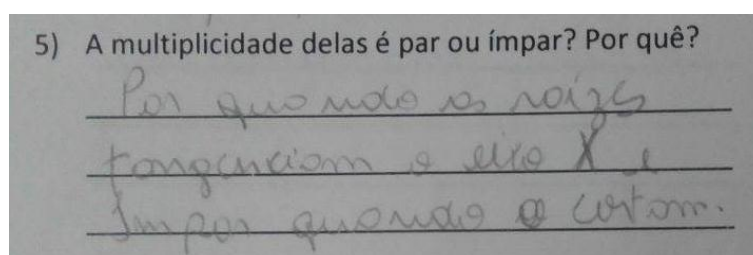 5) A multiplicidade delas é par ou ímpar? Por quê?
Par quando as raízes
tangenciam o eixo X e
Ímpar quando o cortam.